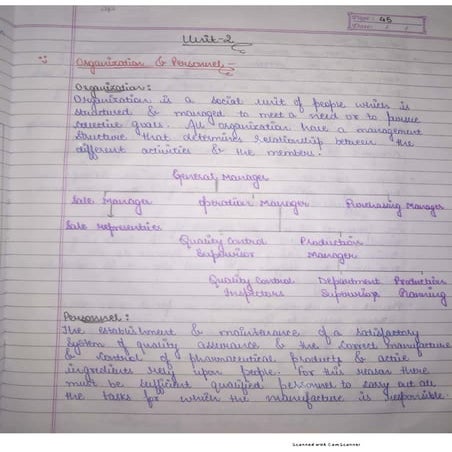 Page: 45
Date: / /
Unit-2
Organization & Personnel -
Organization:
Organization is a social unit of people which is
structured & managed to meet a need or to pursue
collective goals. All organization have a management
structure that determines relationship between the
different activities & the members.
General Manager
Sale Manager operation Manager Purchasing Manager
Sale representies
Quality Control Production
Supervisor Manager
Quality Control Department Production
Inspectors Supervisor Planning
Personnel:
The establishment & maintenance of a satisfactory
system of quality assurance & the correct manufacture
& control of pharmaceutical products & active
ingredients rely upon people. For this reason there
must be sufficient qualified personnel to carry out all
the tasks for which the manufacture is responsible.
Scanned with CamScanner